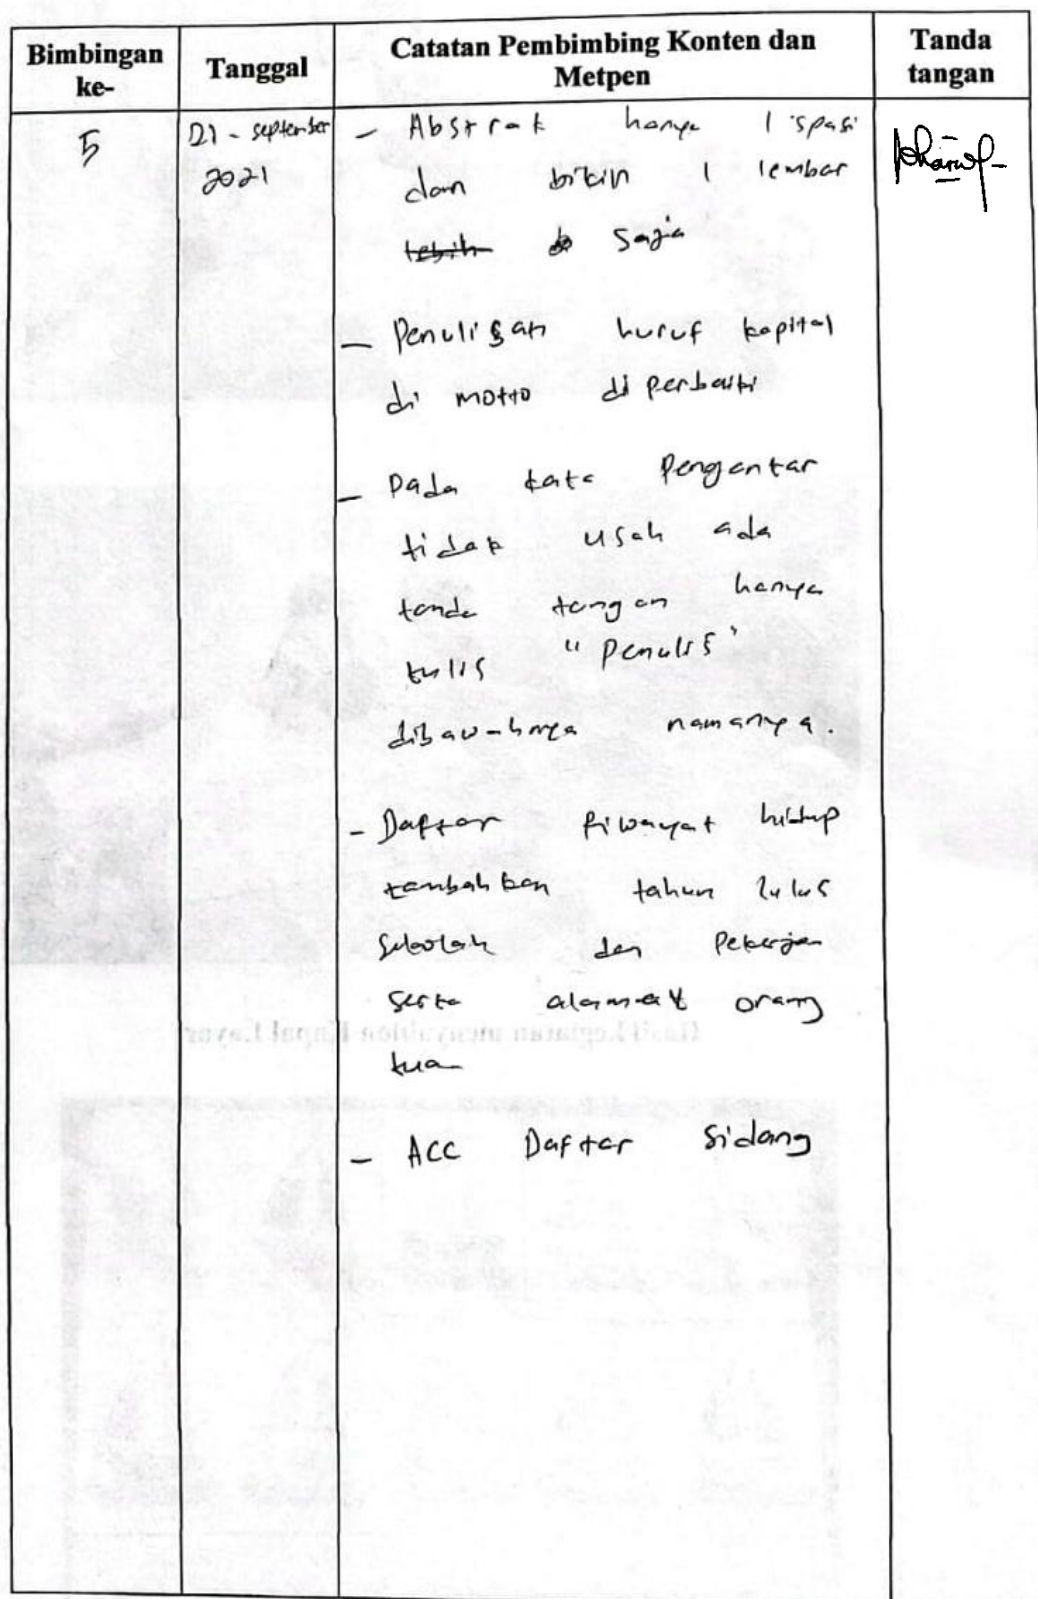 Bimbingan ke-
Tanggal
Catatan Pembimbing Konten dan Metpen
Tanda tangan
5
21 - september
2021
- Abstrak hanya 1 spasi
dan bikin 1 lembar
lebih saja
- Penulisan huruf kapital
di motto diperbaiki
- Pada kata Pengantar
tidak usah ada
tanda tangan hanya
tulis "Penulis"
dibawahnya namanya.
- Daftar Riwayat hidup
tambahkan tahun lulus
sekolah dan Pekerjan
serta alamat orang
tua
- ACC Daftar Sidang
Hasil kegiatan menyablon Kapal Layar